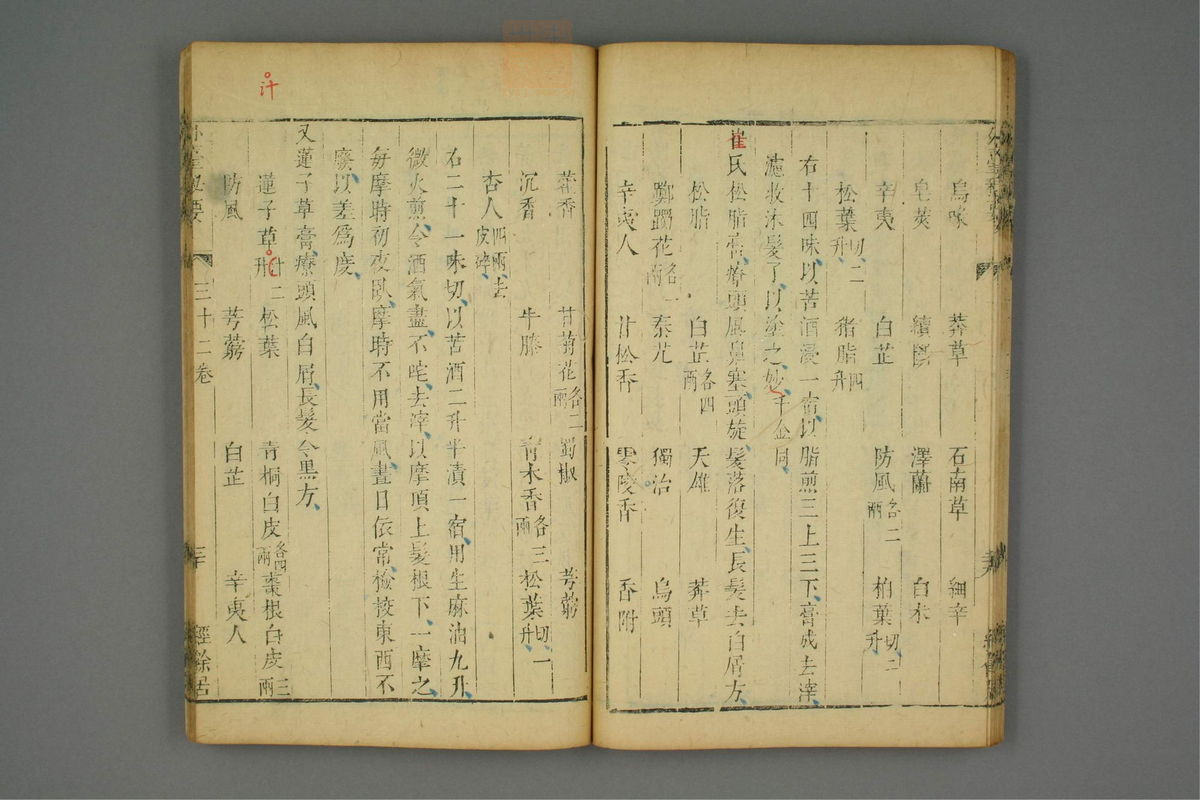 烏喙 莽草 石南草 細辛
皂莢 續斷 澤蘭 白朮
辛夷 白芷 防風各二兩 柏葉切二升
松葉切二升 猪脂四升
右十四味以苦酒浸一宿以脂煎三上三下膏成去滓
濾收沐髮了以塗之妙千金同
崔氏松脂膏療頭風鼻塞頭旋髮落復生長髮去白屑方
松脂 白芷各四兩 天雄 莽草
躑躅花各一兩 秦艽 獨活 烏頭
辛夷人 甘松香 零陵香 香附
藿香 甘菊花各二兩 蜀椒 芎藭
沉香 牛膝 青木香各三兩 松葉切一升
杏人四兩去皮碎
右二十一味切以苦酒二升半漬一宿用生麻油九升
微火煎令酒氣盡不咤去滓以摩頂上髮根下一摩之
每摩時初夜臥摩時不用當風晝日依常檢校東西不
廢以差爲度
又蓮子草膏療頭風白屑長髮令黑方
汁
蓮子草汁二升 松葉 青桐白皮各四兩 棗根白皮三兩
防風 芎藭 白芷 辛夷人
外臺秘要 三十二卷 三十 經餘居